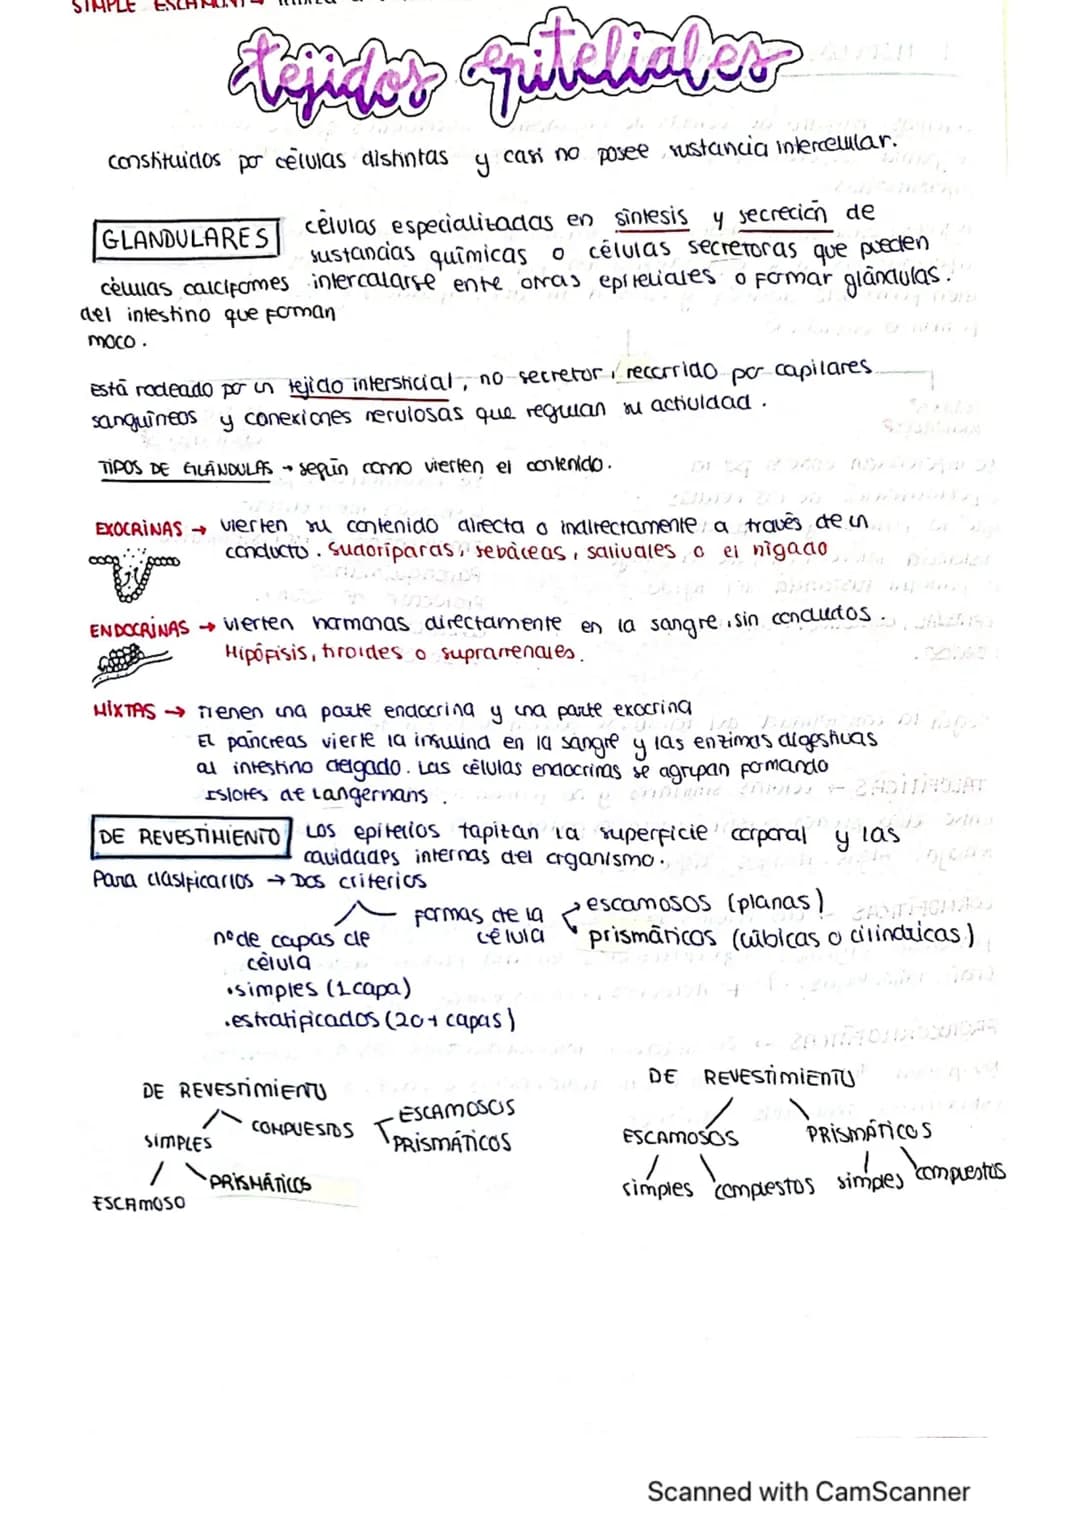 SIMPLE ESCAMOSO →
tejidos epiteliales
constituidos por células distintas y casi no posee sustancia intercelular.
GLANDULARES células especializadas en síntesis y secreción de
sustancias químicas o células secretoras que pueden
células calciformes intercalarse entre otras epiteliales o formar glándulas.
del intestino que forman
moco.
está rodeado por un tejido intersticial, no secretor, recorrido por capilares
sanguíneos y conexiones nerviosas que regulan su actividad.
TIPOS DE GLÁNDULAS → según como vierten el contenido.
EXOCRINAS → vierten su contenido directa o indirectamente a través de un
conducto. Sudoríparas, sebáceas, salivales o el hígado
ENDOCRINAS → vierten hormonas directamente en la sangre, sin conductos.
Hipófisis, tiroides o suprarrenales.
MIXTAS → Tienen una parte endocrina y una parte exocrina
El páncreas vierte la insulina en la sangre y las enzimas digestivas
al intestino delgado. Las células endocrinas se agrupan formando
Islotes de Langernans.
DE REVESTIMIENTO Los epitelios tapizan la superficie corporal y las
cavidades internas del organismo.
Para clasificarlos → Dos criterios
formas de la célula → escamosos (planas)
prismáticos (cúbicas o cilíndricas)
nº de capas de
célula
• simples (1 capa)
• estratificados (2 o + capas)
DE REVESTIMIENTO
SIMPLES COMPUESTOS ESCAMOSOS
PRISMÁTICOS
PRISMÁTICOS
ESCAMOSO
DE REVESTIMIENTO
ESCAMOSOS PRISMÁTICOS
simples compuestos simples compuestos
Scanned with CamScanner